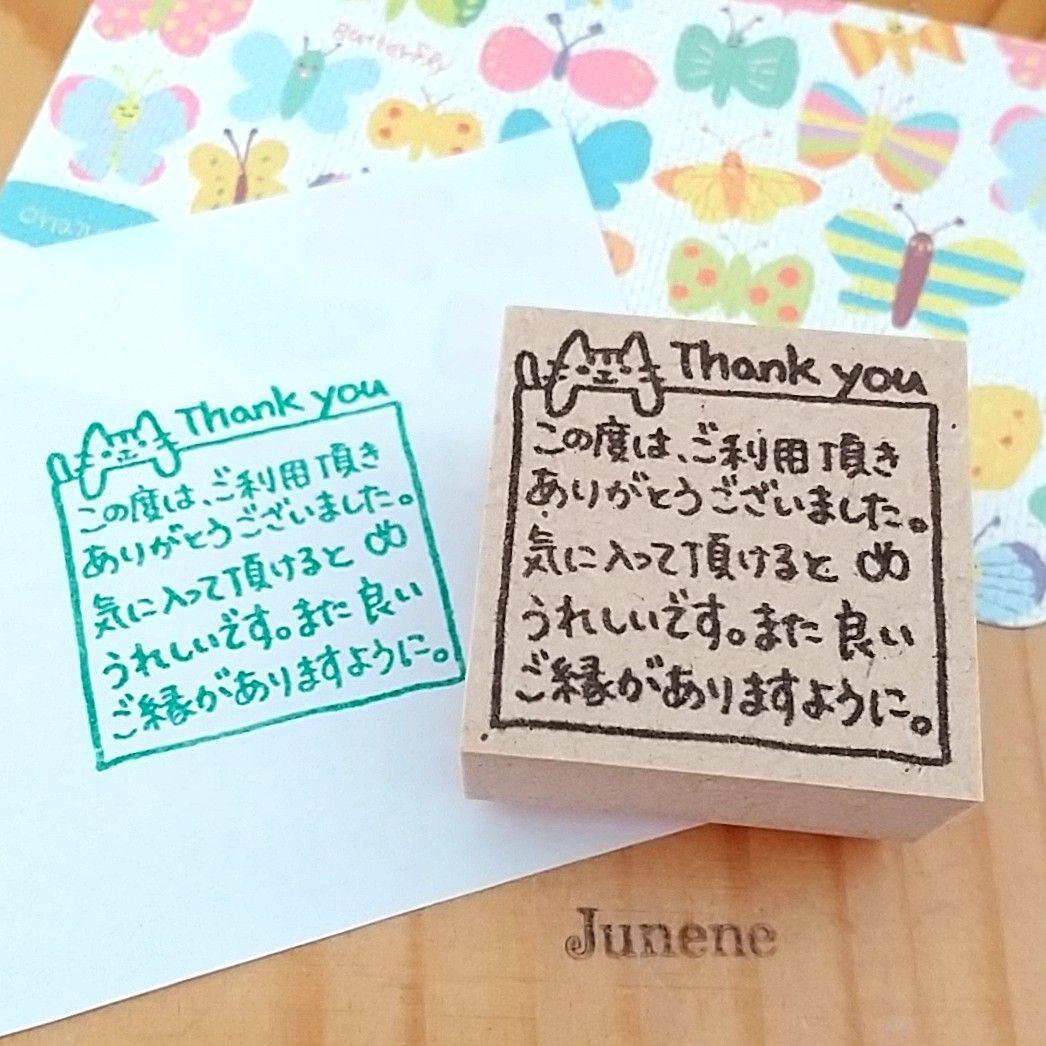 Butterfly
Thank you
この度は、ご利用頂き
ありがとうございました。
気に入って頂けると
うれしいです。また良い
ご縁がありますように。
Thank you
この度は、ご利用頂き
ありがとうございました。
気に入って頂けると
うれしいです。また良い
ご縁がありますように。
Junene